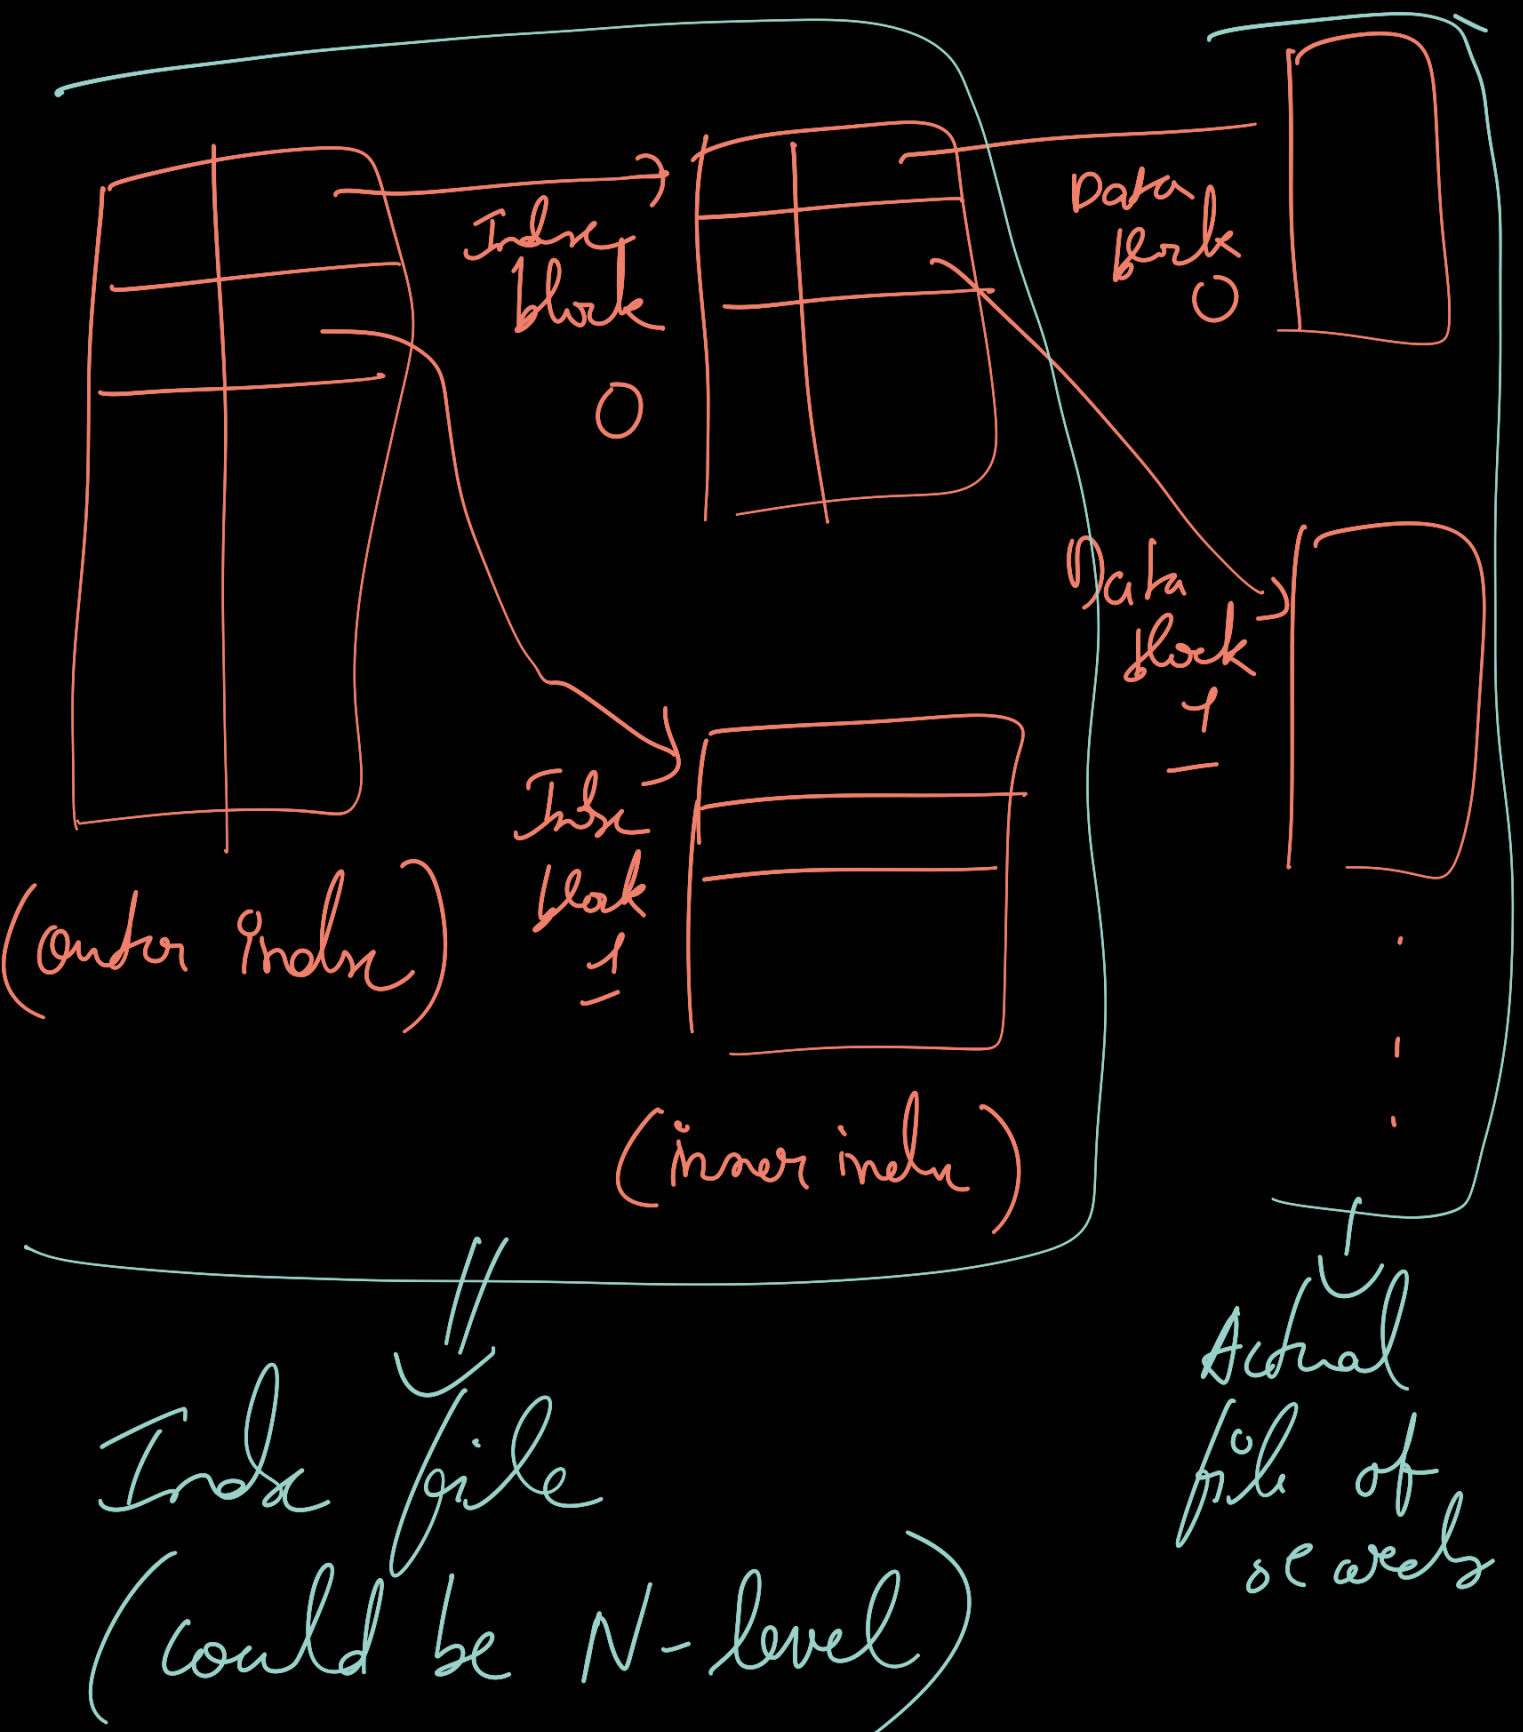 Index
block
0
Data
block
0
Data
block
1
Index
block
1
(outer index)
(inner index)
Index file
(could be N-level)
Actual
file of
records